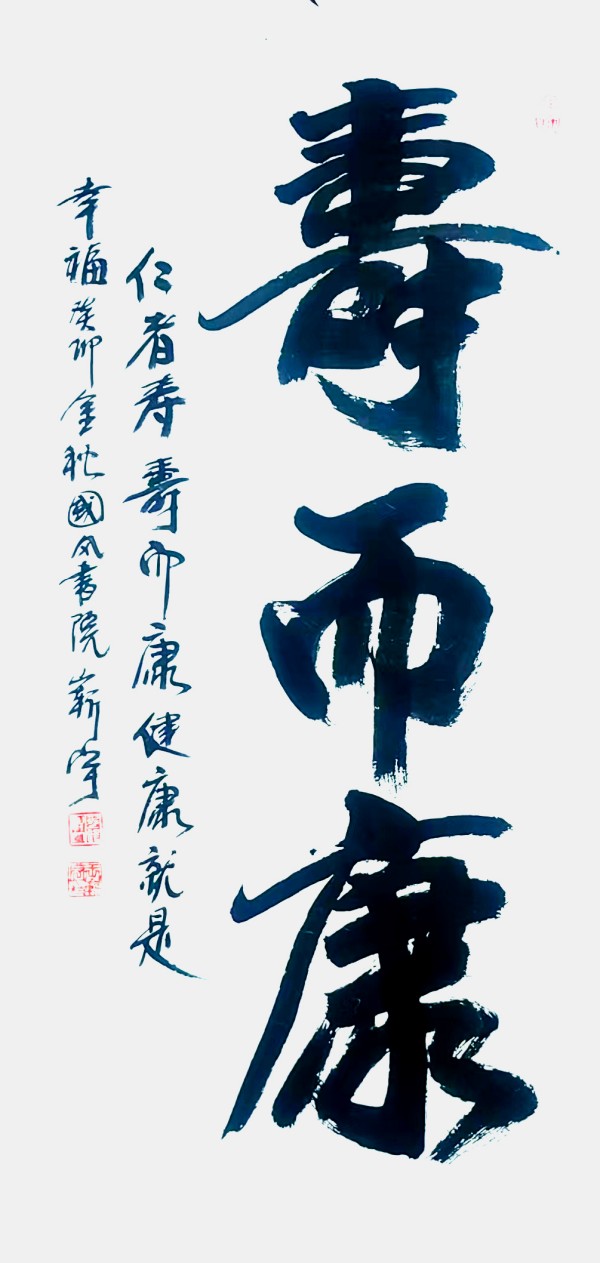 壽而康
仁者寿壽而康健康就是
幸福癸卯金秋國风書院嶄宇